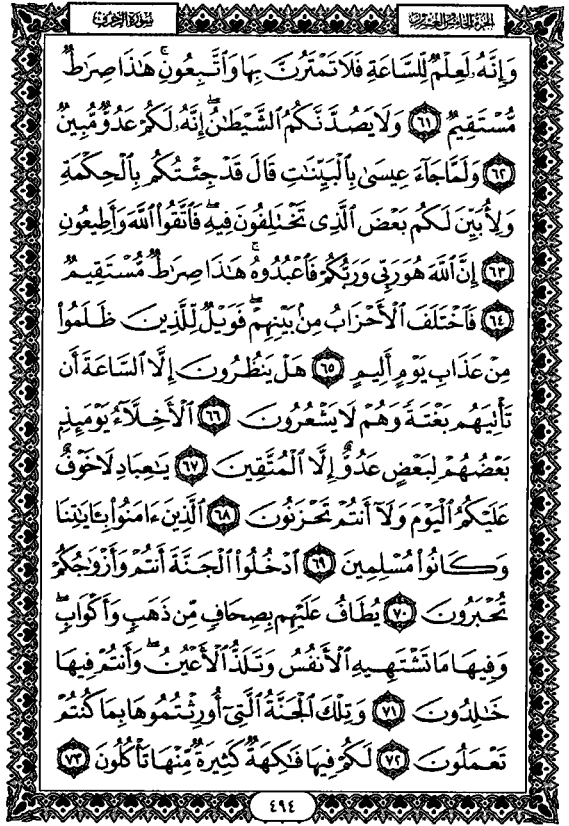 سورة الزخرف
الجزء الخامس والعشرون
وَإِنَّهُۥ لَعِلْمٌ لِّلسَّاعَةِ فَلَا تَمْتَرُنَّ بِهَا وَٱتَّبِعُونِ ۚ هَٰذَا صِرَٰطٌ
مُّسْتَقِيمٌ ٦١ وَلَا يَصُدَّنَّكُمُ ٱلشَّيْطَٰنُ ۖ إِنَّهُۥ لَكُمْ عَدُوٌّ مُّبِينٌ
٦٢ وَلَمَّا جَآءَ عِيسَىٰ بِٱلْبَيِّنَٰتِ قَالَ قَدْ جِئْتُكُم بِٱلْحِكْمَةِ
وَلِأُبَيِّنَ لَكُم بَعْضَ ٱلَّذِى تَخْتَلِفُونَ فِيهِ ۖ فَٱتَّقُوا۟ ٱللَّهَ وَأَطِيعُونِ
٦٣ إِنَّ ٱللَّهَ هُوَ رَبِّى وَرَبُّكُمْ فَٱعْبُدُوهُ ۚ هَٰذَا صِرَٰطٌ مُّسْتَقِيمٌ
٦٤ فَٱخْتَلَفَ ٱلْأَحْزَابُ مِنۢ بَيْنِهِمْ ۖ فَوَيْلٌ لِّلَّذِينَ ظَلَمُوا۟
مِنْ عَذَابِ يَوْمٍ أَلِيمٍ ٦٥ هَلْ يَنظُرُونَ إِلَّا ٱلسَّاعَةَ أَن
تَأْتِيَهُم بَغْتَةً وَهُمْ لَا يَشْعُرُونَ ٦٦ ٱلْأَخِلَّآءُ يَوْمَئِذٍۭ
بَعْضُهُمْ لِبَعْضٍ عَدُوٌّ إِلَّا ٱلْمُتَّقِينَ ٦٧ يَٰعِبَادِ لَا خَوْفٌ
عَلَيْكُمُ ٱلْيَوْمَ وَلَآ أَنتُمْ تَحْزَنُونَ ٦٨ ٱلَّذِينَ ءَامَنُوا۟ بِـَٔايَٰتِنَا
وَكَانُوا۟ مُسْلِمِينَ ٦٩ ٱدْخُلُوا۟ ٱلْجَنَّةَ أَنتُمْ وَأَزْوَٰجُكُمْ
تُحْبَرُونَ ٧٠ يُطَافُ عَلَيْهِم بِصِحَافٍ مِّن ذَهَبٍ وَأَكْوَابٍ ۖ
وَفِيهَا مَا تَشْتَهِيهِ ٱلْأَنفُسُ وَتَلَذُّ ٱلْأَعْيُنُ ۖ وَأَنتُمْ فِيهَا
خَٰلِدُونَ ٧١ وَتِلْكَ ٱلْجَنَّةُ ٱلَّتِىٓ أُورِثْتُمُوهَا بِمَا كُنتُمْ
تَعْمَلُونَ ٧٢ لَكُمْ فِيهَا فَٰكِهَةٌ كَثِيرَةٌ مِّنْهَا تَأْكُلُونَ ٧٣
٤٩٤